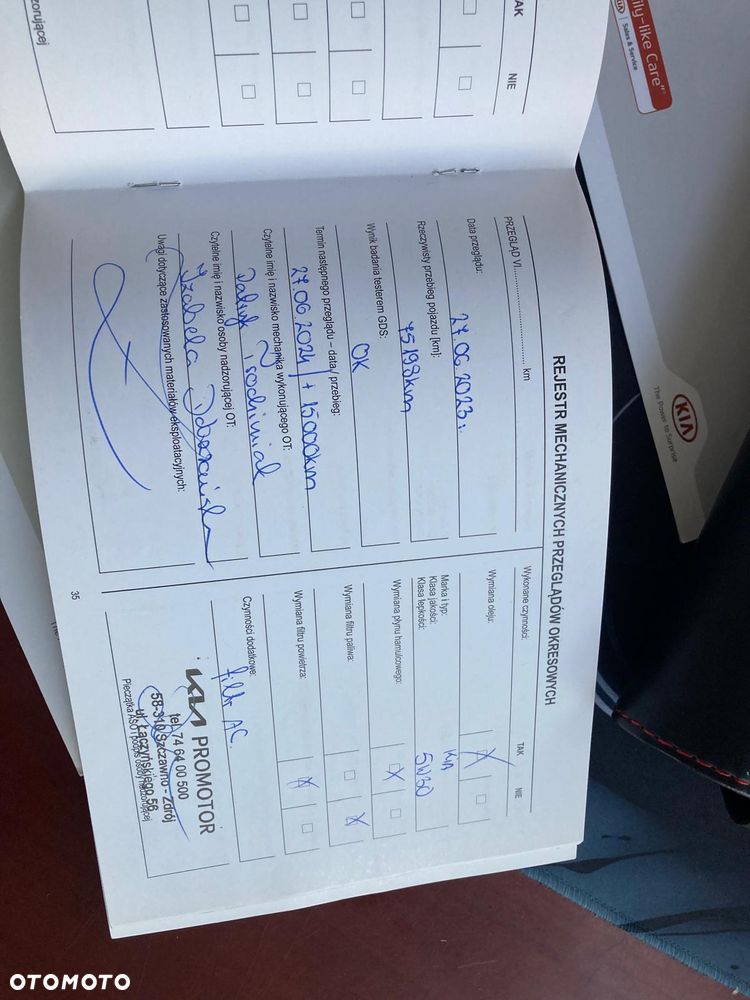 zorującej
TAK
NIE
ily-like Care"
KIA
Sales & Service
KIA
The Power to Surprise
REJESTR MECHANICZNYCH PRZEGLĄDÓW OKRESOWYCH
PRZEGLĄD VI.............................. km
Data przeglądu:
27.06.2023r.
Rzeczywisty przebieg pojazdu [km]:
75198km
Wynik badania testerem GDS:
OK
Termin następnego przeglądu – data/ przebieg:
27.06.2024/+15000km
Czytelne imię i nazwisko mechanika wykonującego OT:
Czytelne imię i nazwisko osoby nadzorującej OT:
Izabela
Uwagi dotyczące zastosowanych materiałów eksploatacyjnych:
Wykonane czynności:
TAK
NIE
Wymiana oleju:
Marka i typ:
Kia
Klasa jakości:
Klasa lepkości:
5W30
Wymiana płynu hamulcowego:
Wymiana filtru paliwa:
Wymiana filtru powietrza:
Czynności dodatkowe:
filtr AC.
KIA PROMOTOR
tel. 74 64 00 500
58-310 Szczawno - Zdrój
ul. Łączyńskiego 56
Pieczątka ASO i podpis osoby nadzorującej
35
OTOMOTO